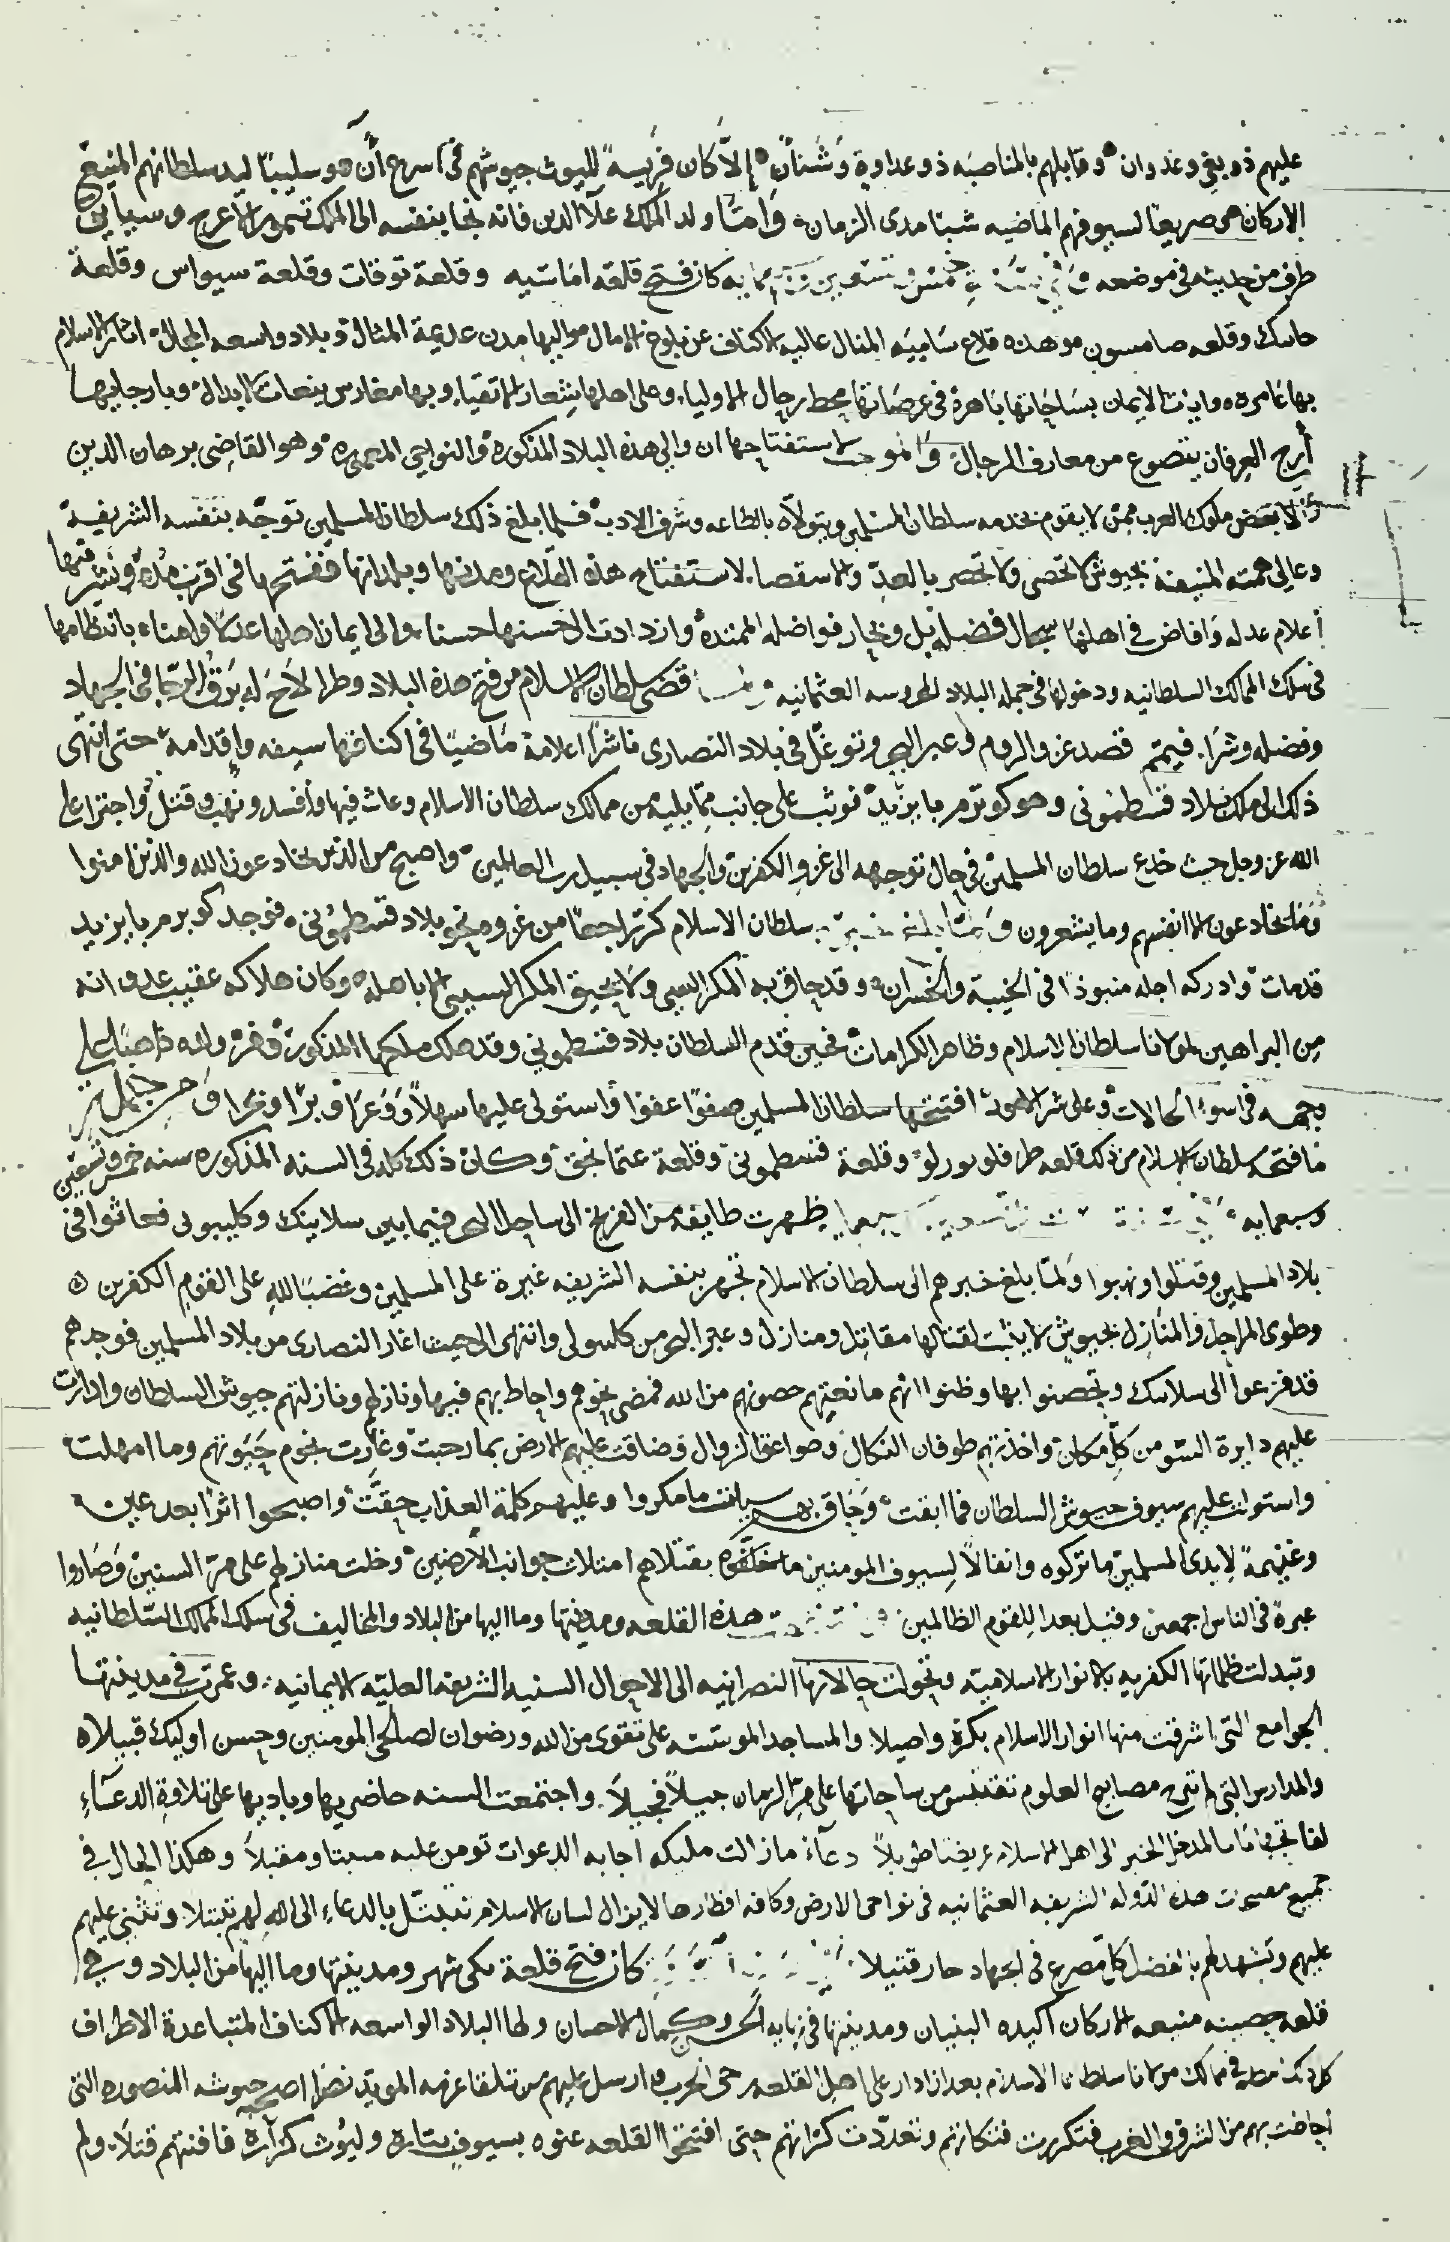 عليهم ذو بغي وعدوان وقابلهم بالمناصبه ذو عداوة وشنان إلا كان فريسة لليوث جيوشهم في اسرع آن هو سليبا ليد سلطانهم المنيع
الاركان صريعا لسيوفهم الماضيه شبا مدى الزمان واما ولد الملك علا الدين فانه نجا بنفسه الى الملك تمور الاعرج وسياتي
طرف من حديثه في موضعه وفي سنة خمس وتسعين وسبعمايه كان فتح قلعه اماسيه وقلعة توقات وقلعة سيواس وقلعة
جانيك وقلعه صامسون وهذه قلاع سامية المنال عاليه الاكناف عن بلوغ الامال مواليها مدن عديمة المثال وبلاد واسعه المجال اثار الاسلام
بها عامره وايات الايمان بساحاتها باهرة في عرصاتها محط رجال الاوليا وعلى اهلها شعار الاتقيا وبها مغارس ينعات الابدال وبارجايها
أرج العرفان يتضوع من معارف الرجال والموجب لاستفتاحها ان والي هذه البلاد المذكورة والنواحي المعموره وهو القاضي برهان الدين
بعض ملوك العرب ممن لا يقوم بخدمه سلطان المسلمين ويتولاه بالطاعه وشرف الادب فلما بلغ ذلك سلطان المسلمين توجه بنفسه الشريفة
وعالي همته المنيفة بجيوش لا تحصى ولا تحصر بالعد والاستقصا لاستفتاح هذه القلاع ومدنها وبلدانها ففتحها في اقرب مدة ونشر فيها
أعلام عدله وافاض في اهلها سجال فضله نيل وبحار فواضله الممتدة وازدادت الى حسنها حسنا والى ايمان اهلها عدلا وامنا بانتظامها
في سلك الممالك السلطانيه ودخولها في جمله البلاد المحروسه العثمانيه ولما قضى سلطان الاسلام من فتح هذه البلاد وطرا لاح له برق الرجا في الجهاد
وفضله وشرا فيمم قصد غزو الروم وعبر البحر وتوغل في بلاد النصارى ناشرا اعلامه ماضيا في اكنافها سيفه واقدامه حتى انتهى
ذلك الى ملك بلاد قسطموني وهو كوترم بايزيد فوثب على جانب مما يليه من ممالك سلطان الاسلام وعاث فيها وأفسد ونهب وقتل واجترا على
الله عز وجل حيث خدع سلطان المسلمين في حال توجهه الى غزو الكفرين والجهاد في سبيل رب العالمين واصبح من الذين يخادعون الله والذين امنوا
وما يخادعون الا انفسهم وما يشعرون ولما بلغ خبره سلطان الاسلام كر راجعا من غزوه نحو بلاد قسطموني فوجد كوترم بايزيد
قد مات وادركه اجله منبوذا في الخيبة والخسران وقد حاق به المكر السيي ولا يحيق المكر السيي الا باهله وكان هلاكه عقيب عدوانه
من البراهين لمولانا سلطان الاسلام وظاهر الكرامات فحين قدم السلطان بلاد قسطموني وقد هلك ملكها المذكور وفر ولده ذاهبا على
وجهه في اسوء الحالات وعلى شر العود افتتحها سلطان المسلمين صفوا عفوا واستولى عليها سهلا ووعرا وبرا وبحرا ومن جملة
ما افتتحه سلطان الاسلام من ذلك قلعه طرقلوبورلو وقلعة قسطموني وقلعة عثمانجق وكان ذلك كله في السنه المذكوره سنه خمس وتسعين
وسبعمايه وفي سنة ست وتسعين وسبعمايه ظهرت طايفه من الفرنج الى ساحل البحر فيما بين سلانيك وكليبولي فعاثوا في
بلاد المسلمين وقتلوا ونهبوا ولما بلغ خبرهم الى سلطان الاسلام تجهز بنفسه الشريفه غيرة على المسلمين وغضبا لله على القوم الكفرين
وطوى المراحل والمنازل بجيوش لا يثبت لقتالها مقاتل ومنازل وعبر البحر من كليبولي وانتهى الى حيث اغار النصارى من بلاد المسلمين فوجدهم
قد فزعوا الى سلانيك وتحصنوا بها وظنوا انهم مانعتهم حصونهم من الله فمضى نحوهم واحاط بهم فيها ونازلهم ونازلتهم جيوش السلطان وادارت
عليهم دايرة السو من كل مكان واخذتهم طوفان النكال وصواعق الزوال وضاقت عليهم الارض بما رحبت وغارت نجوم حيوتهم وما امهلت
واستولت عليهم سيوف جيوش السلطان فما ابقت وحاق بهم سيات ما مكروا وعليهم كلمة العذاب حقت واصبحوا اثرا بعد عين
وغنيمة لايدي المسلمين ما تركوه وانفالا لسيوف المومنين ما خلفوه بقتلاهم امتلات جوانب الارضين وخلت منازلهم على مر السنين وصاروا
عبرة في الناس اجمعين وقيل بعدا للقوم الظالمين وانتظمت هذه القلعه ومدينتها وما اليها من البلاد والمخاليف في سلك الممالك السلطانيه
وتبدلت ظلماتها الكفريه بالانوار الاسلاميه وتحولت حالاتها النصرانيه الى الاحوال السنيه الشريفة العليه الايمانيه وعمرت في مدينتها
الجوامع التي اشرقت منها انوار الاسلام بكرة واصيلا والمساجد الموسسه على تقوى من الله ورضوان لصالحي المومنين وحسن اوليك قبيلا
والمدارس التي لم تبرح مصابيح العلوم تقتبس من ساحاتها على مر الزمان جيلا فجيلا واجتمعت السنه حاضريها وباديها على تلاوة الدعاء
لفاتحها المدخل الخير الى اهل الاسلام عريضا طويلا دعآء ما زالت مليكه اجابه الدعوات تومن عليه مبيتا ومقيلا وهكذا الحال في
جميع هذه الدوله الشريفه العثمانيه في نواحي الارض وكافه اقطارها لا يزال لسان الاسلام يتبتل بالدعاء الى الله لهم تبتلا وتثني عليهم
عليهم وتشهد لهم بالفضل كل مصرع في الجهاد حار قتيلا كان فتح قلعة يكي شهر ومدينتها وما اليها من البلاد وهي
قلعه حصينه منيعه الاركان اكيده البنيان ومدينتها في نهايه الحسن وكمال الاحسان ولها البلاد الواسعه الاكناف المتباعدة الاطراف
كل ذلك في ممالك مولانا سلطان الاسلام بعد ان دار على اهل القلعه رحى الحرب وارسل عليهم من تلقا عزمه المويد نصرا اصبح جيوشه المنصوره التي
احاطت بهم من الشرق والغرب فتكررت فتكاتهم وتعددت كراتهم حتى افتتحوا القلعه عنوه بسيوف بتارة وليوث كرارة فافنتهم قتلا ولم